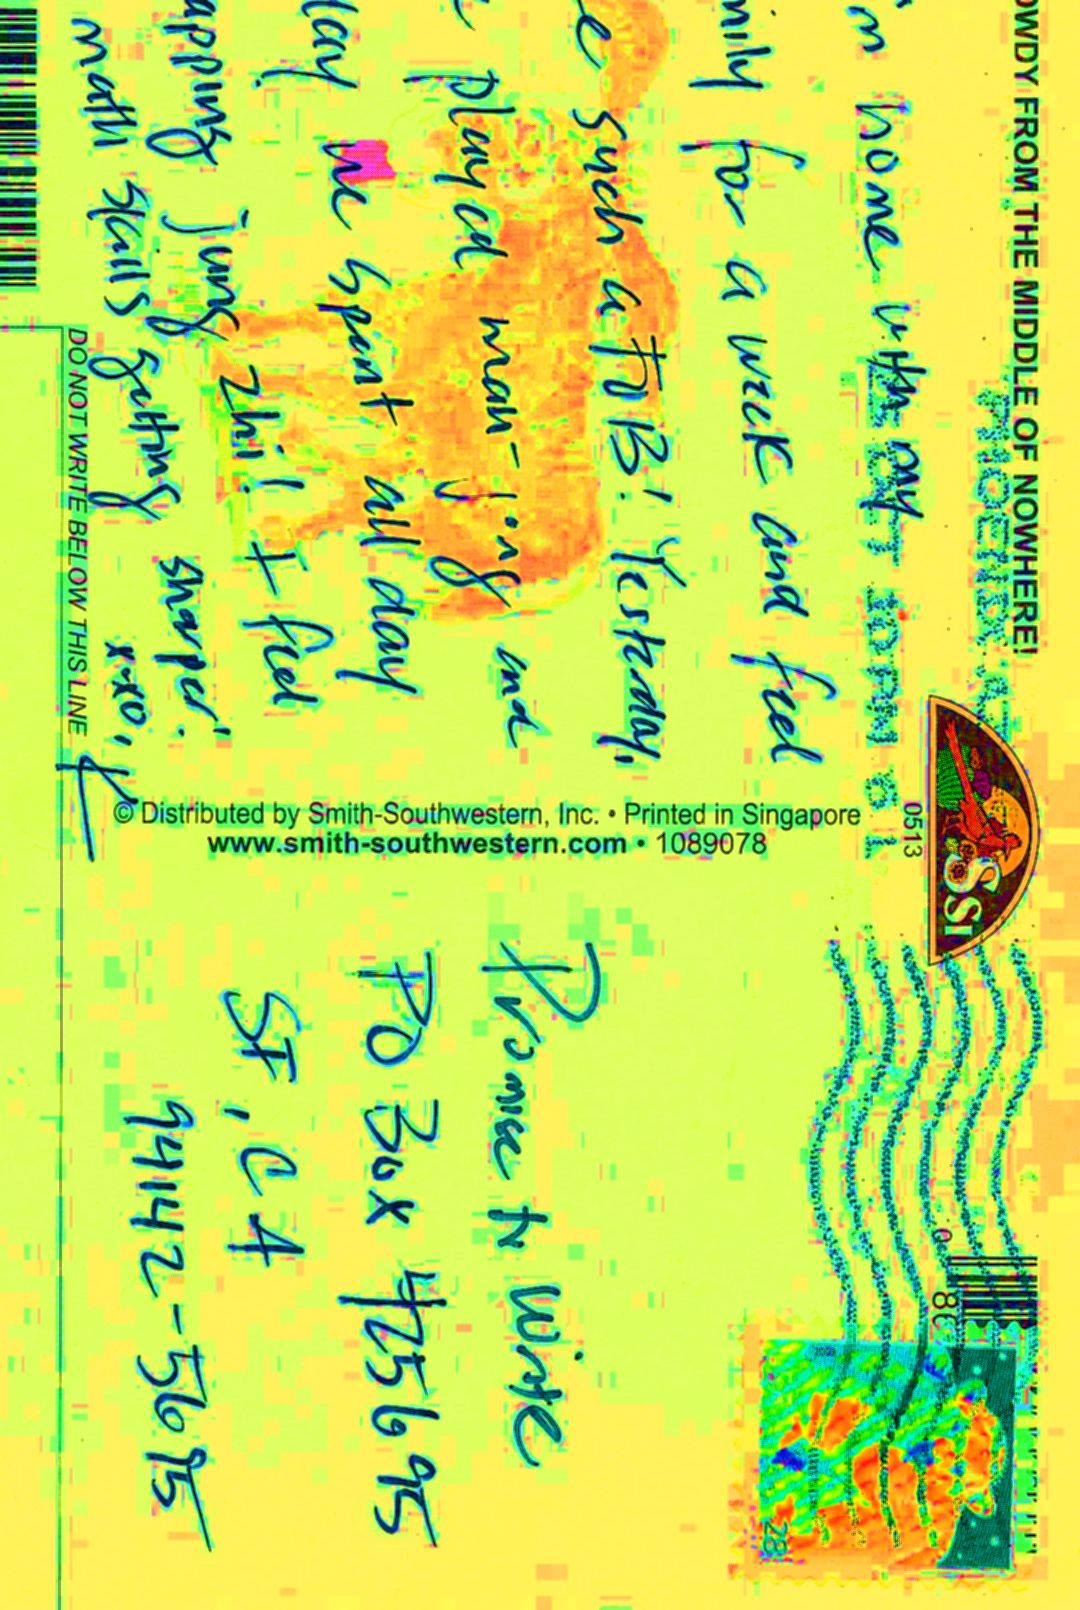 OWDY FROM THE MIDDLE OF NOWHERE!
PHOENIX
'm home with my
mily for a week and feel
e such a FOB! Yesterday,
played mah-jong and
lay! We spent all day
apping jung zhi! I feel
math skills getting sharper!
xoxo, K
DO NOT WRITE BELOW THIS LINE
© Distributed by Smith-Southwestern, Inc. • Printed in Singapore
www.smith-southwestern.com • 1089078
0513
SSI
Promise to Write
PO Box 425695
SF, CA
94142-5695
28